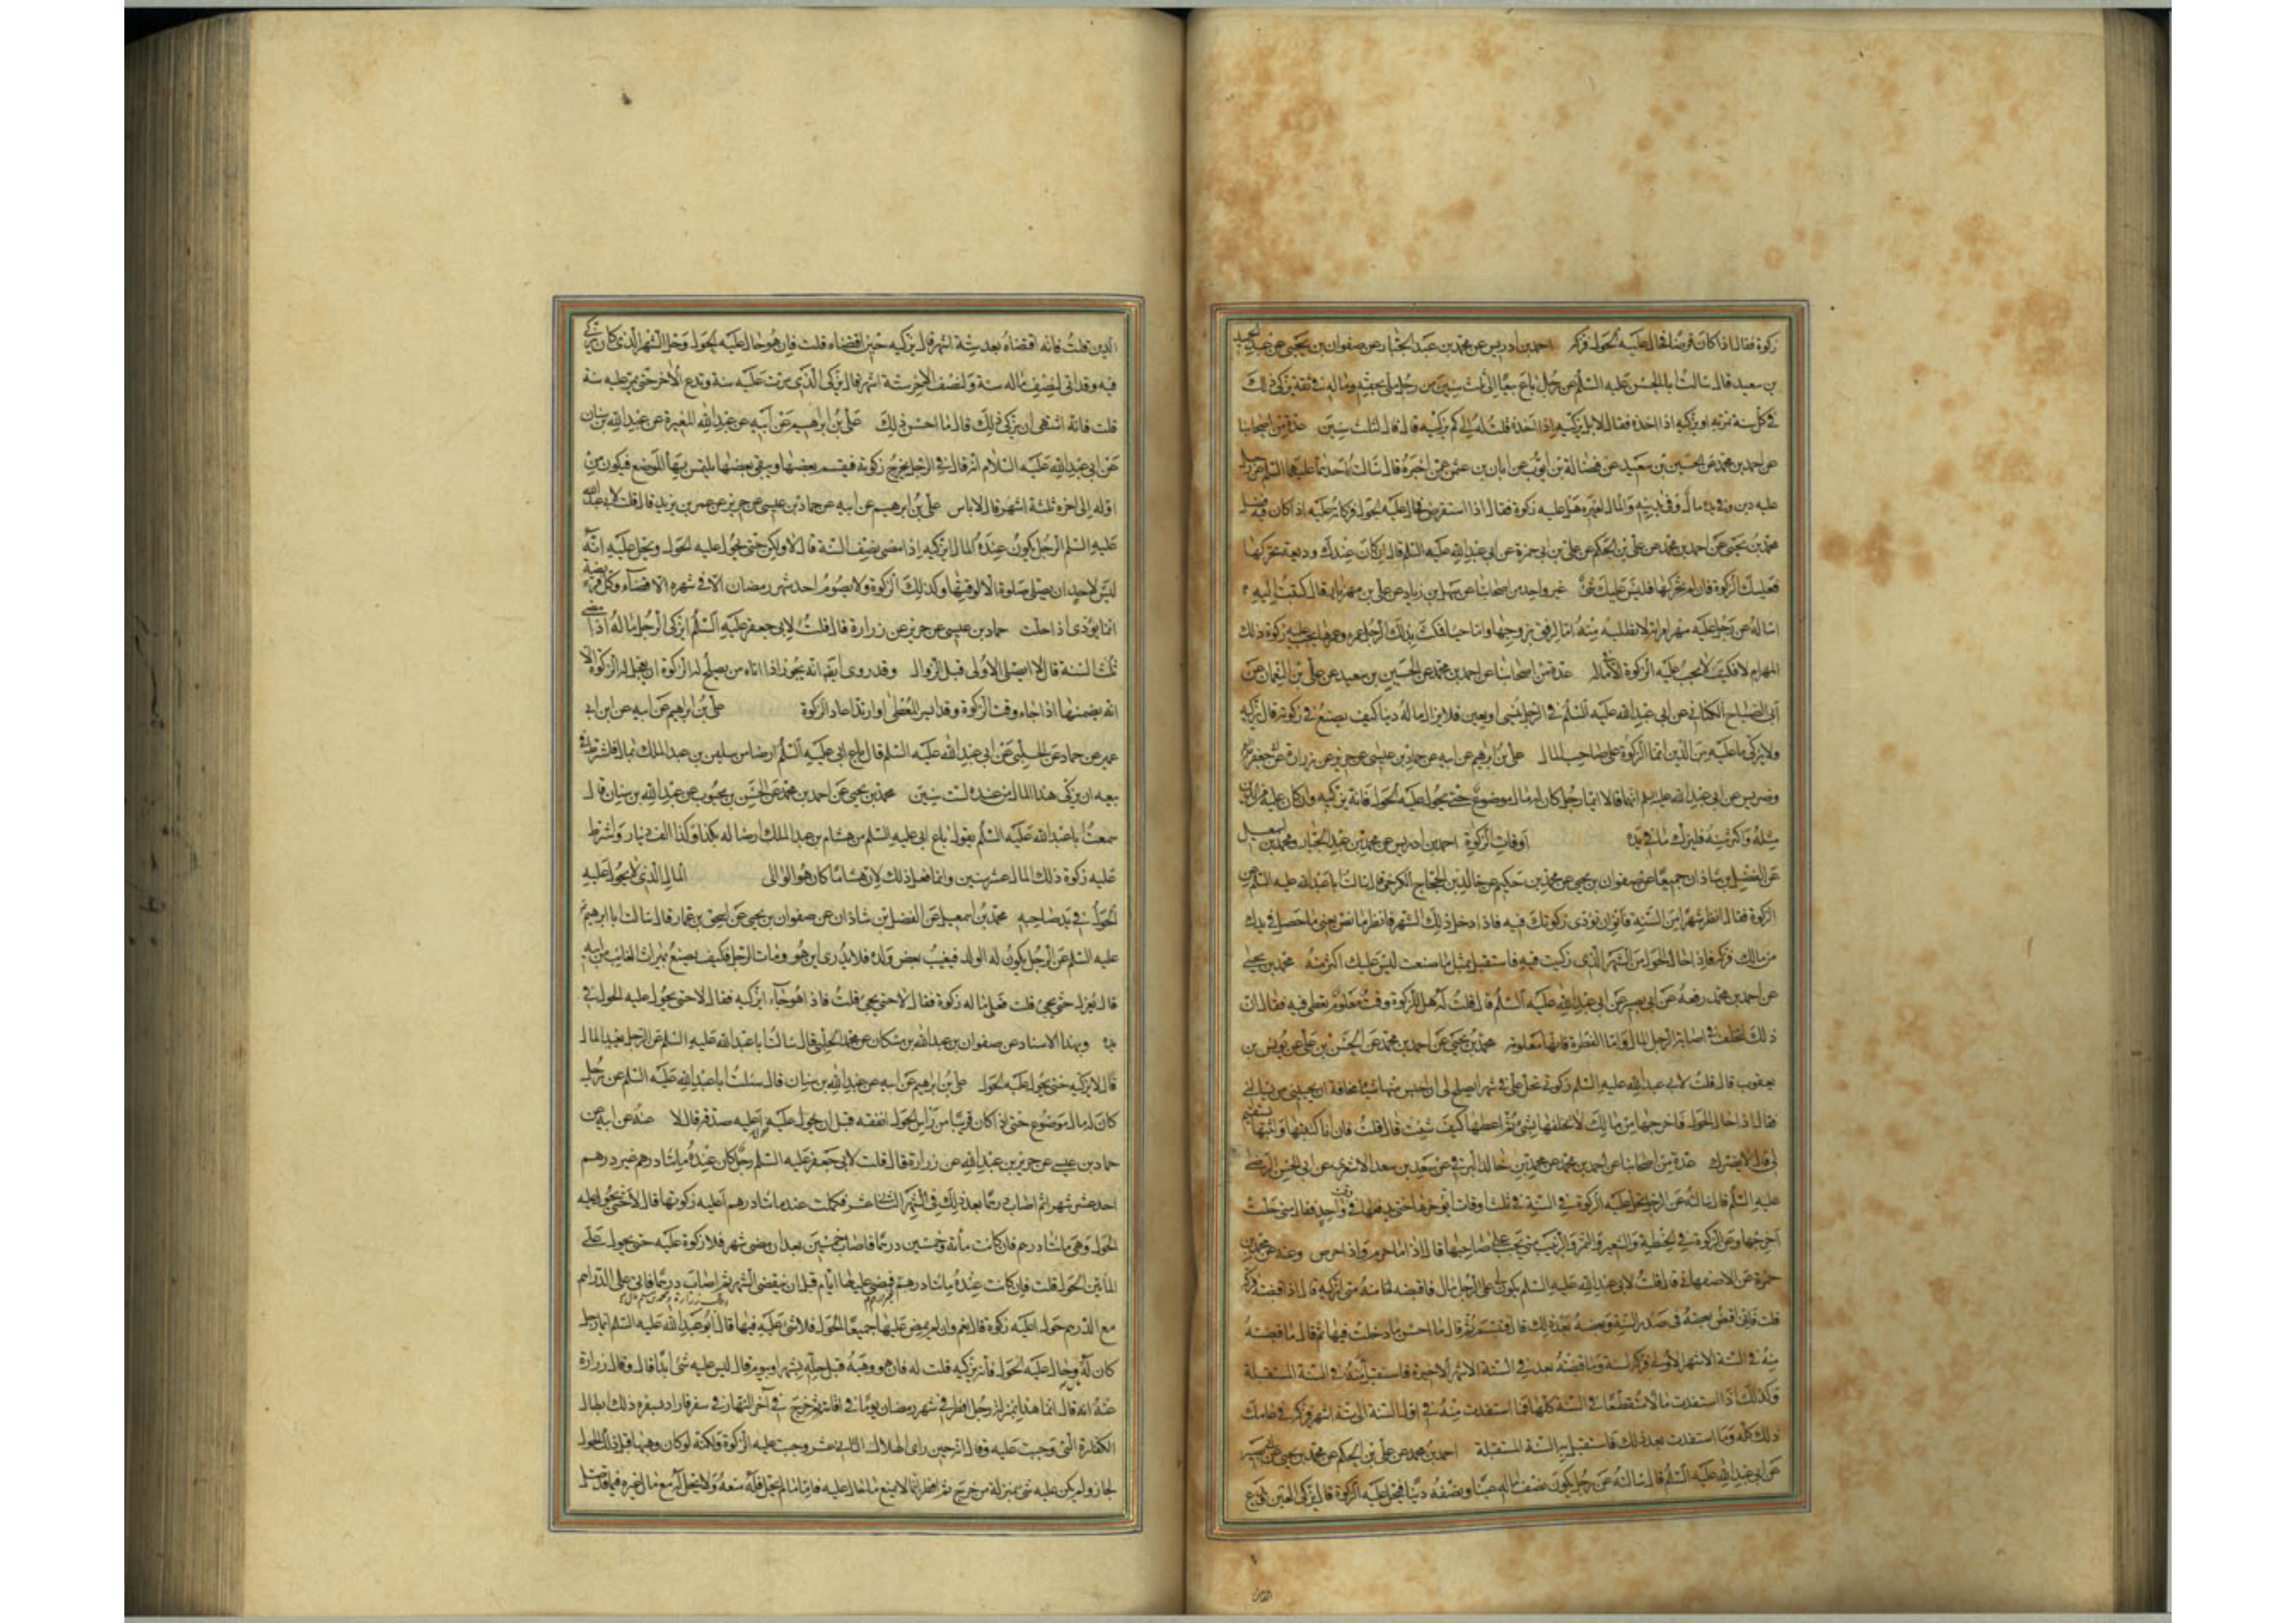 زكوة فقال اذا كان قرضا فحال عليه الحول فزكه احمد بن ادريس عن محمد بن عبد الجبار عن صفوان بن يحيى عن عبد الحميد
بن سعيد قال سالت ابا الحسن عليه السلم عن رجل باع بيعا الى ثلث سنين من رجل ملى بحقه وماله فى ثقة يزكى ذلك
فى كل سنة تمر به او يزكيه اذا اخذه فقال لا بل يزكيه اذا اخذه قلت له لكم يزكيه قال قال لثلث سنين عدة من اصحابنا
عن احمد بن محمد عن الحسين بن سعيد عن فضالة بن ايوب عن ابان بن عثمن عمن اخبره قال سالت احدهما عليهما السلم عن رجل
عليه دين وفى يده مال وفى بدينه والمال لغيره هل عليه زكوة فقال اذا استقرض فحال عليه الحول فزكاته عليه اذا كان فيه فضل
محمد بن يحيى عن احمد بن محمد عن على بن الحكم عن على بن ابى حمزة عن ابى عبد الله عليه السلم قال ان كان عندك وديعة تحركها
فعليك الزكوة فان لم تحركها فليس عليك شئ غير واحد من اصحابنا عن سهل بن زياد عن على بن مهزيار قال كتبت اليه
اساله عن رجل عليه مهر امراته لا تطلبه منه اما لرفق بزوجها واما حيا فمكث بذلك الرجل عمره وعمرها يجب عليه زكوة ذلك
المهر ام لا فكتب لا يجب عليه الزكوة الا فى ماله عدة من اصحابنا عن احمد بن محمد عن الحسين بن سعيد عن على بن النعمان عن
ابى الصباح الكنانى عن ابى عبد الله عليه السلم فى الرجل ينسى او يعين فلا يزال ماله دينا كيف يصنع فى زكوته قال يزكيه
ولا يزكى ما عليه من الدين انما الزكوة على صاحب المال على بن ابرهيم عن ابيه عن حماد بن عيسى عن حريز عن زرارة عن ابى جعفر
وضريس عن ابى عبد الله عليهما السلم انهما قالا ايما رجل كان له مال موضوع حتى يحول عليه الحول فانه يزكيه وان كان عليه من الدين
مثله واكثر منه فليزك ما فى يده اوقات الزكوة احمد بن ادريس عن محمد بن عبد الجبار ومحمد بن اسمعيل
عن الفضل بن شاذان جميعا عن صفوان بن يحيى عن محمد بن حكيم عن خالد بن الحجاج الكرخى قال سالت ابا عبد الله عليه السلم عن
الزكوة فقال انظر شهرا من السنة فانو ان تؤدى زكوتك فيه فاذا دخل ذلك الشهر فانظر ما نض يعنى ما حصل فى يدك
من مالك فزكه فاذا حال الحول من الشهر الذى زكيت فيه فاستقبل بمثل ما صنعت ليس عليك اكثر منه محمد بن يحيى
عن احمد بن محمد رفعه عن ابى بصير عن ابى عبد الله عليه السلم قال قلت له هل للزكوة وقت معلوم تعطى فيه فقال ان
ذلك ليختلف فى اصابة الرجل المال واما الفطرة فانها معلومة محمد بن يحيى عن احمد بن محمد عن الحسن بن على عن يونس بن
يعقوب قال قلت لابى عبد الله عليه السلم زكوتى تحل على فى شهر ايصلح لى ان احبس منها شيئا مخافة ان يجيئنى من يسالنى
فقال اذا حال الحول فاخرجها من مالك لا تخلطها بشئ ثم اعطها كيف شئت قال قلت فان انا كتبتها واثبتها يستقيم
لى قال لا يضرك عدة من اصحابنا عن احمد بن محمد عن محمد بن خالد البرقى عن سعد بن سعد الاشعرى عن ابى الحسن الرضا
عليه السلم قال سالته عن الرجل تحل عليه الزكوة فى السنة فى ثلث اوقات ايؤخرها حتى يدفعها فى وقت واحد فقال متى حلت
اخرجها وعن الزكوة فى الحنطة والشعير والتمر والزبيب متى تجب على صاحبها قال اذا ما صرم واذا خرص وعنه عن محمد بن
حمزة عن الاصفهانى قال قلت لابى عبد الله عليه السلم يكون لى على الرجل مال فاقبضه لخامسه متى ازكيه قال اذا قبضته فزكه
قلت فانى اقبض بعضه فى صدر السنة وبعضه بعد ذلك قال فتبسم ثم قال ما احسن ما دخلت فيها ثم قال ما قبضته
منه فى الستة الاشهر الاولى فزكه لسنة وما قبضته بعد فى الستة الاشهر الاخيرة فاستقبل به فى السنة المستقبلة
وكذلك اذا استفدت مالا منقطعا فى السنة كلها فما استفدت منه فى اول السنة الى ستة اشهر فزكه فى عامك
ذلك كله وما استفدت بعد ذلك فاستقبل به السنة المستقبلة احمد بن محمد عن على بن الحكم عن محمد بن يحيى عن ابى بصير
عن ابى عبد الله عليه السلم قال سالته عن رجل يكون نصف ماله عينا ونصفه دينا فتحل عليه الزكوة قال يزكى العين ويدع
الدين قلت فانه اقتضاه بعد ستة اشهر قال يزكيه حين اقتضاه قلت فان هو حال عليه الحول وحل الشهر الذى كان يزكى
فيه وقد اتى لنصف ماله سنة ولنصف الاخر ستة اشهر قال يزكى الذى مرت عليه سنة ويدع الاخر حتى تمر عليه سنة
قلت فانه اشتهى ان يزكى ذلك قال ما احسن ذلك على بن ابرهيم عن ابيه عن عبد الله المغيرة عن عبد الله بن سنان
عن ابى عبد الله عليه السلام انه قال فى الرجل يخرج زكوته فيقسم بعضها ويبقى بعضها يلتمس بها الموضع فيكون من
اوله الى اخره ثلثة اشهر قال لا باس على بن ابرهيم عن ابيه عن حماد بن عيسى عن حريز عن عمر بن يزيد قال قلت لابى عبد الله
عليه السلم الرجل يكون عنده المال ايزكيه اذا مضى نصف السنة قال لا ولكن حتى يحول عليه الحول ويحل عليه انه
ليس لاحد ان يصلى صلوة الا لوقتها وكذلك الزكوة ولا يصوم احد شهر رمضان الا فى شهره الا قضاء وكل فريضة
انما تؤدى اذا حلت حماد بن عيسى عن حريز عن زرارة قال قلت لابى جعفر عليه السلم ايزكى الرجل ماله اذا مضى
ثلث السنة قال لا ايصلى الاولى قبل الزوال وقد روى ايضا انه يجوز اذا اتاه من يصلح له الزكوة ان يعجل له الزكوة الا
انه يضمنها اذا جاء وقت الزكوة وقد ايسر المعطى او ارتد اعاد الزكوة على بن ابراهيم عن ابيه عن ابن ابى
عمير عن حماد عن الحلبى عن ابى عبد الله عليه السلم قال باع ابى عليه السلم ارضا من سليمن بن عبد الملك بمال فاشترط فى
بيعه ان يزكى هذا المال من عنده لست سنين محمد بن يحيى عن احمد بن محمد عن الحسن بن محبوب عن عبد الله بن سنان قال
سمعت ابا عبد الله عليه السلم يقول باع ابى عليه السلم من هشام بن عبد الملك ارضا له بكذا وكذا الف دينار واشترط
عليه زكوة ذلك المال عشر سنين وانما فعل ذلك لان هشاما كان هو الوالى المال الذى لا يحول عليه
الحول فى يد صاحبه محمد بن اسمعيل عن الفضل بن شاذان عن صفوان بن يحيى عن اسحق بن عمار قال سالت ابا ابرهيم
عليه السلم عن الرجل يكون له الولد فيغيب بعض ولده فلا يدرى اين هو ومات الرجل فكيف يصنع بميراث الغائب من ابيه
قال يعزل حتى يجئ قلت فعلى ماله زكوة فقال لا حتى يجئ قلت فاذا هو جاء ايزكيه فقال لا حتى يحول عليه الحول فى
يده وبهذا الاسناد عن صفوان بن عبد الله بن مسكان عن محمد الحلبى قال سالت ابا عبد الله عليه السلم عن الرجل يفيد المال
قال لا يزكيه حتى يحول عليه الحول على بن ابرهيم عن ابيه عن عبد الله بن سنان قال سئلت ابا عبد الله عليه السلم عن رجل
كان له مال موضوع حتى اذا كان قريبا من راس الحول انفقه قبل ان يحول عليه اعليه صدقة قال لا عنه عن ابيه عن
حماد بن عيسى عن حريز بن عبد الله عن زرارة قال قلت لابى جعفر عليه السلم رجل كان عنده مائتا درهم غير درهم
احد عشر شهرا ثم اصاب درهما بعد ذلك فى الشهر الثانى عشر فكملت عنده مائتا درهم اعليه زكوتها قال لا حتى يحول عليه
الحول وهى مائتا درهم فان كانت مأئة وخمسين درهما فاصاب خمسين بعد ان مضى شهر فلا زكوة عليه حتى يحول على
المأتين الحول قلت فان كانت عنده مائتا درهم فمضى عليها ايام قبل ان ينقضى الشهر ثم اصاب درهما فاتى على الدراهم
مع الدرهم حول اعليه زكوة قال نعم وان لم يمض عليها جميعا الحول فلا شئ عليه فيها قال ابو عبد الله عليه السلم ايما رجل
كان له مال وحال عليه الحول فانه يزكيه قلت له فان هو وهبه قبل حله بشهر او بيوم قال ليس عليه شئ ابدا قال وقال زرارة
عنه انه قال انما هذا بمنزلة رجل افطر فى شهر رمضان يوما فى اقامته ثم خرج فى آخر النهار فى سفر فاراد بسفره ذلك ابطال
الكفارة التى وجبت عليه وقال انه حين راى الهلال الثانى عشر وجبت عليه الزكوة ولكنه لو كان وهبها قبل ذلك
لجاز ولم يكن عليه شئ بمنزلة من خرج ثم افطر انما لا يمنع ما حال عليه فاما ما لم يحل فله منعه ولا يحل له منع مال غيره فيما قد حل